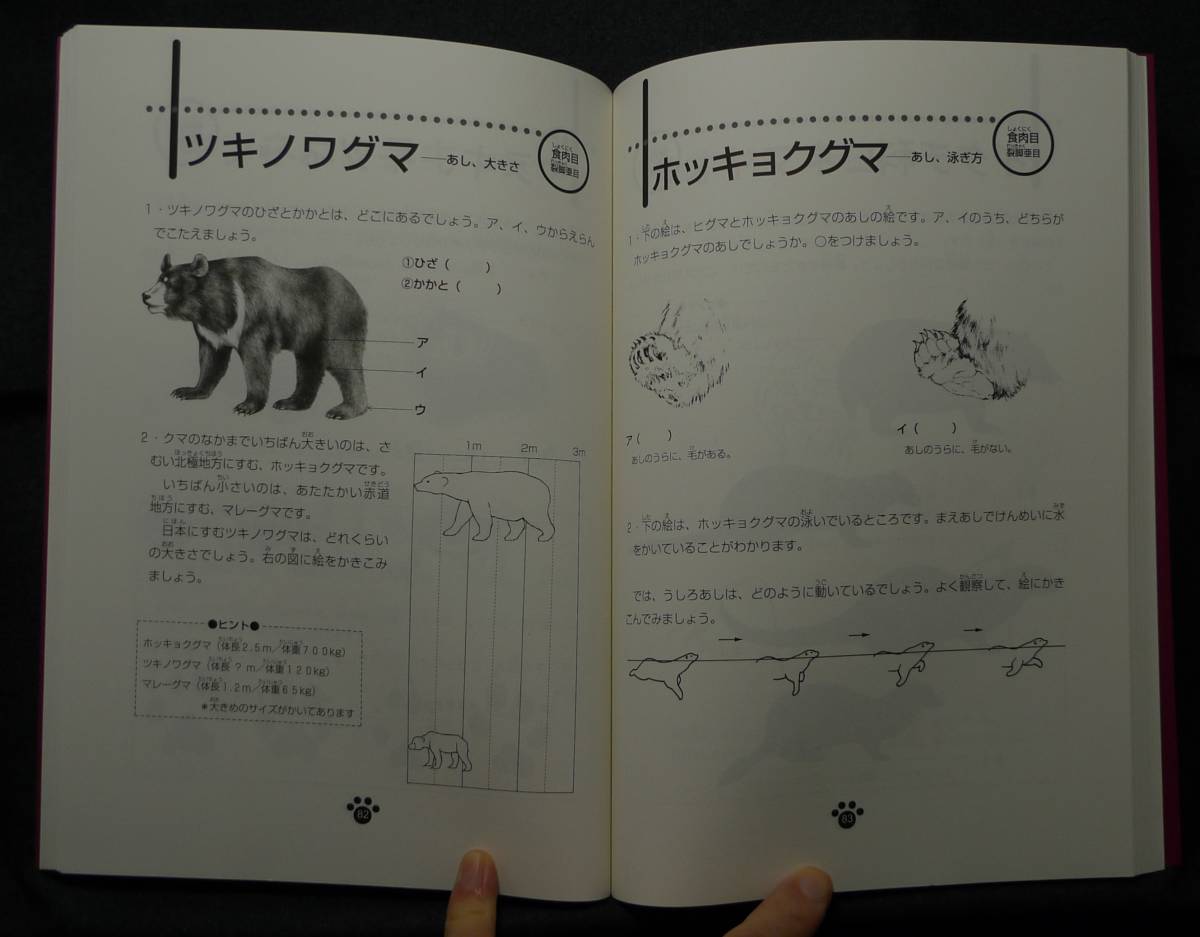 ツキノワグマ──あし、大きさ
しょくにく
食肉目
裂脚亜目
1・ツキノワグマのひざとかかとは、どこにあるでしょう。ア、イ、ウからえらん
でこたえましょう。
①ひざ（　　）
②かかと（　　）
ア
イ
ウ
2・クマのなかまでいちばん大きいのは、さ
むい北極地方にすむ、ホッキョクグマです。
いちばん小さいのは、あたたかい赤道
地方にすむ、マレーグマです。
日本にすむツキノワグマは、どれくらい
の大きさでしょう。右の図に絵をかきこみ
ましょう。
●ヒント●
ホッキョクグマ（体長2.5m／体重700kg）
ツキノワグマ（体長？m／体重120kg）
マレーグマ（体長1.2m／体重65kg）
＊大きめのサイズがかいてあります
1m 2m 3m
82
ホッキョクグマ──あし、泳ぎ方
しょくにく
食肉目
裂脚亜目
1・下の絵は、ヒグマとホッキョクグマのあしの絵です。ア、イのうち、どちらが
ホッキョクグマのあしでしょうか。○をつけましょう。
ア（　　）
あしのうらに、毛がある。
イ（　　）
あしのうらに、毛がない。
2・下の絵は、ホッキョクグマの泳いでいるところです。まえあしでけんめいに水
をかいていることがわかります。
では、うしろあしは、どのように動いているでしょう。よく観察して、絵にかき
こんでみましょう。
83